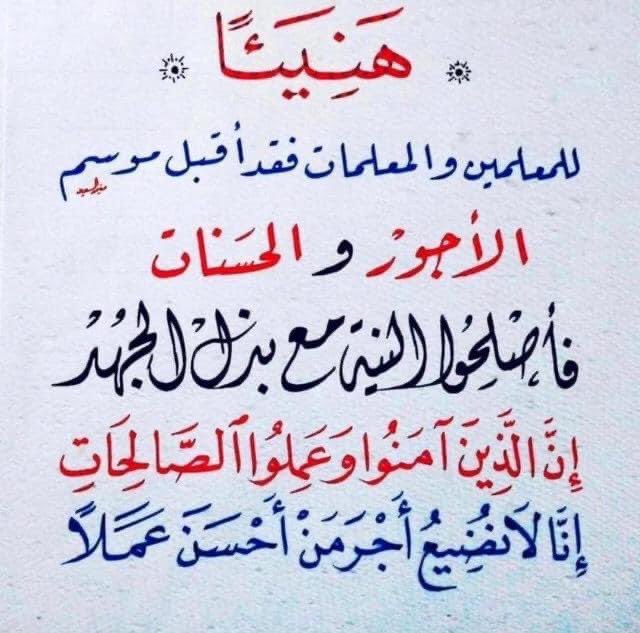 هَنِيَئًا
للمعلمين والمعلمات فقد أقبل موسم
الأجورْ و الحسَنات
فأصْلِحُوا النية مع بذلْ الجُهدْ
إِنَّ الَّذِينَ آمَنُوا وَعَمِلُوا ٱلصَّالِحَاتِ
إِنَّا لَا نُضِيعُ أَجْرَ مَنْ أَحْسَنَ عَمَلًا